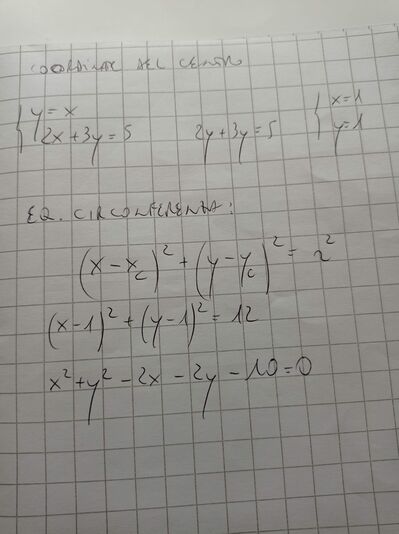 COORDINATE DEL CENTRO
{ y = x
2x + 3y = 5
2y + 3y = 5
{ x = 1
y = 1
EQ. CIRCONFERENZA:
(x - x_c)² + (y - y_c)² = r²
(x - 1)² + (y - 1)² = 12
x² + y² - 2x - 2y - 10 = 0